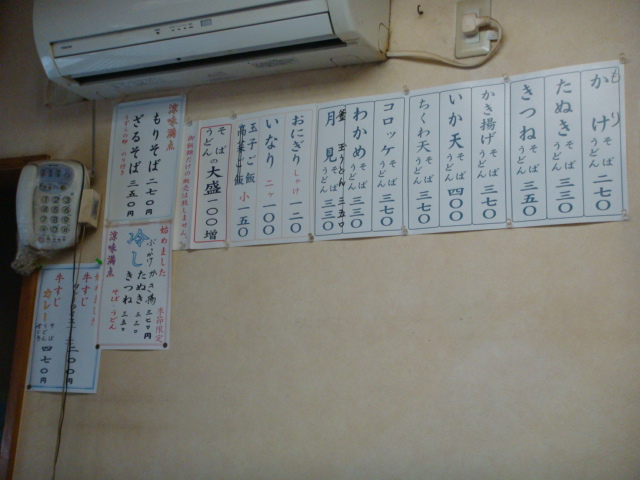 もり
かけ そば うどん 二七〇
たぬき そば うどん 三三〇
きつね そば うどん 三五〇
かき揚げ そば うどん 三七〇
いか天 そば うどん 四〇〇
ちくわ天 そば うどん 三七〇
コロッケ そば うどん 三七〇
わかめ そば うどん 三三〇
釜玉うどん 三五〇
月見 そば うどん 三三〇
おにぎり しゃけ 一二〇
いなり 二ヶ 一〇〇
玉子ご飯
高菜ご飯 小 一五〇
そば うどん の大盛 一〇〇増
涼味満点
もりそば 二七〇円
ざるそば 三五〇円
始めました
冷し
ぶっかけ
かき揚 三七〇円
たぬき 三三〇
きつね 三五〇
そば・うどん
涼味満点
牛すじ
牛すじ
カレー そば うどん 四七〇円